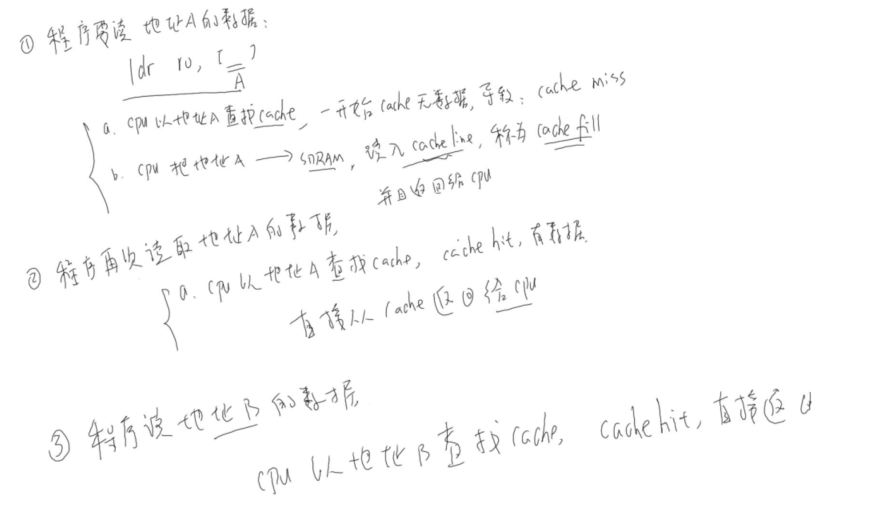 ① 程序要读 地址A的数据:
ldr r0, [A]
a. cpu 以地址A查找cache, 一开始cache无数据, 导致: cache miss
b. cpu 把地址A → SDRAM, 读入 cache line, 称为 cache fill
并且返回给 cpu
② 程序再次读取地址A的数据,
a. cpu 以地址A查找cache, cache hit, 有数据.
直接从 cache 返回给 cpu
③ 程序读地址B的数据
cpu 以地址B查找cache, cache hit, 直接返回